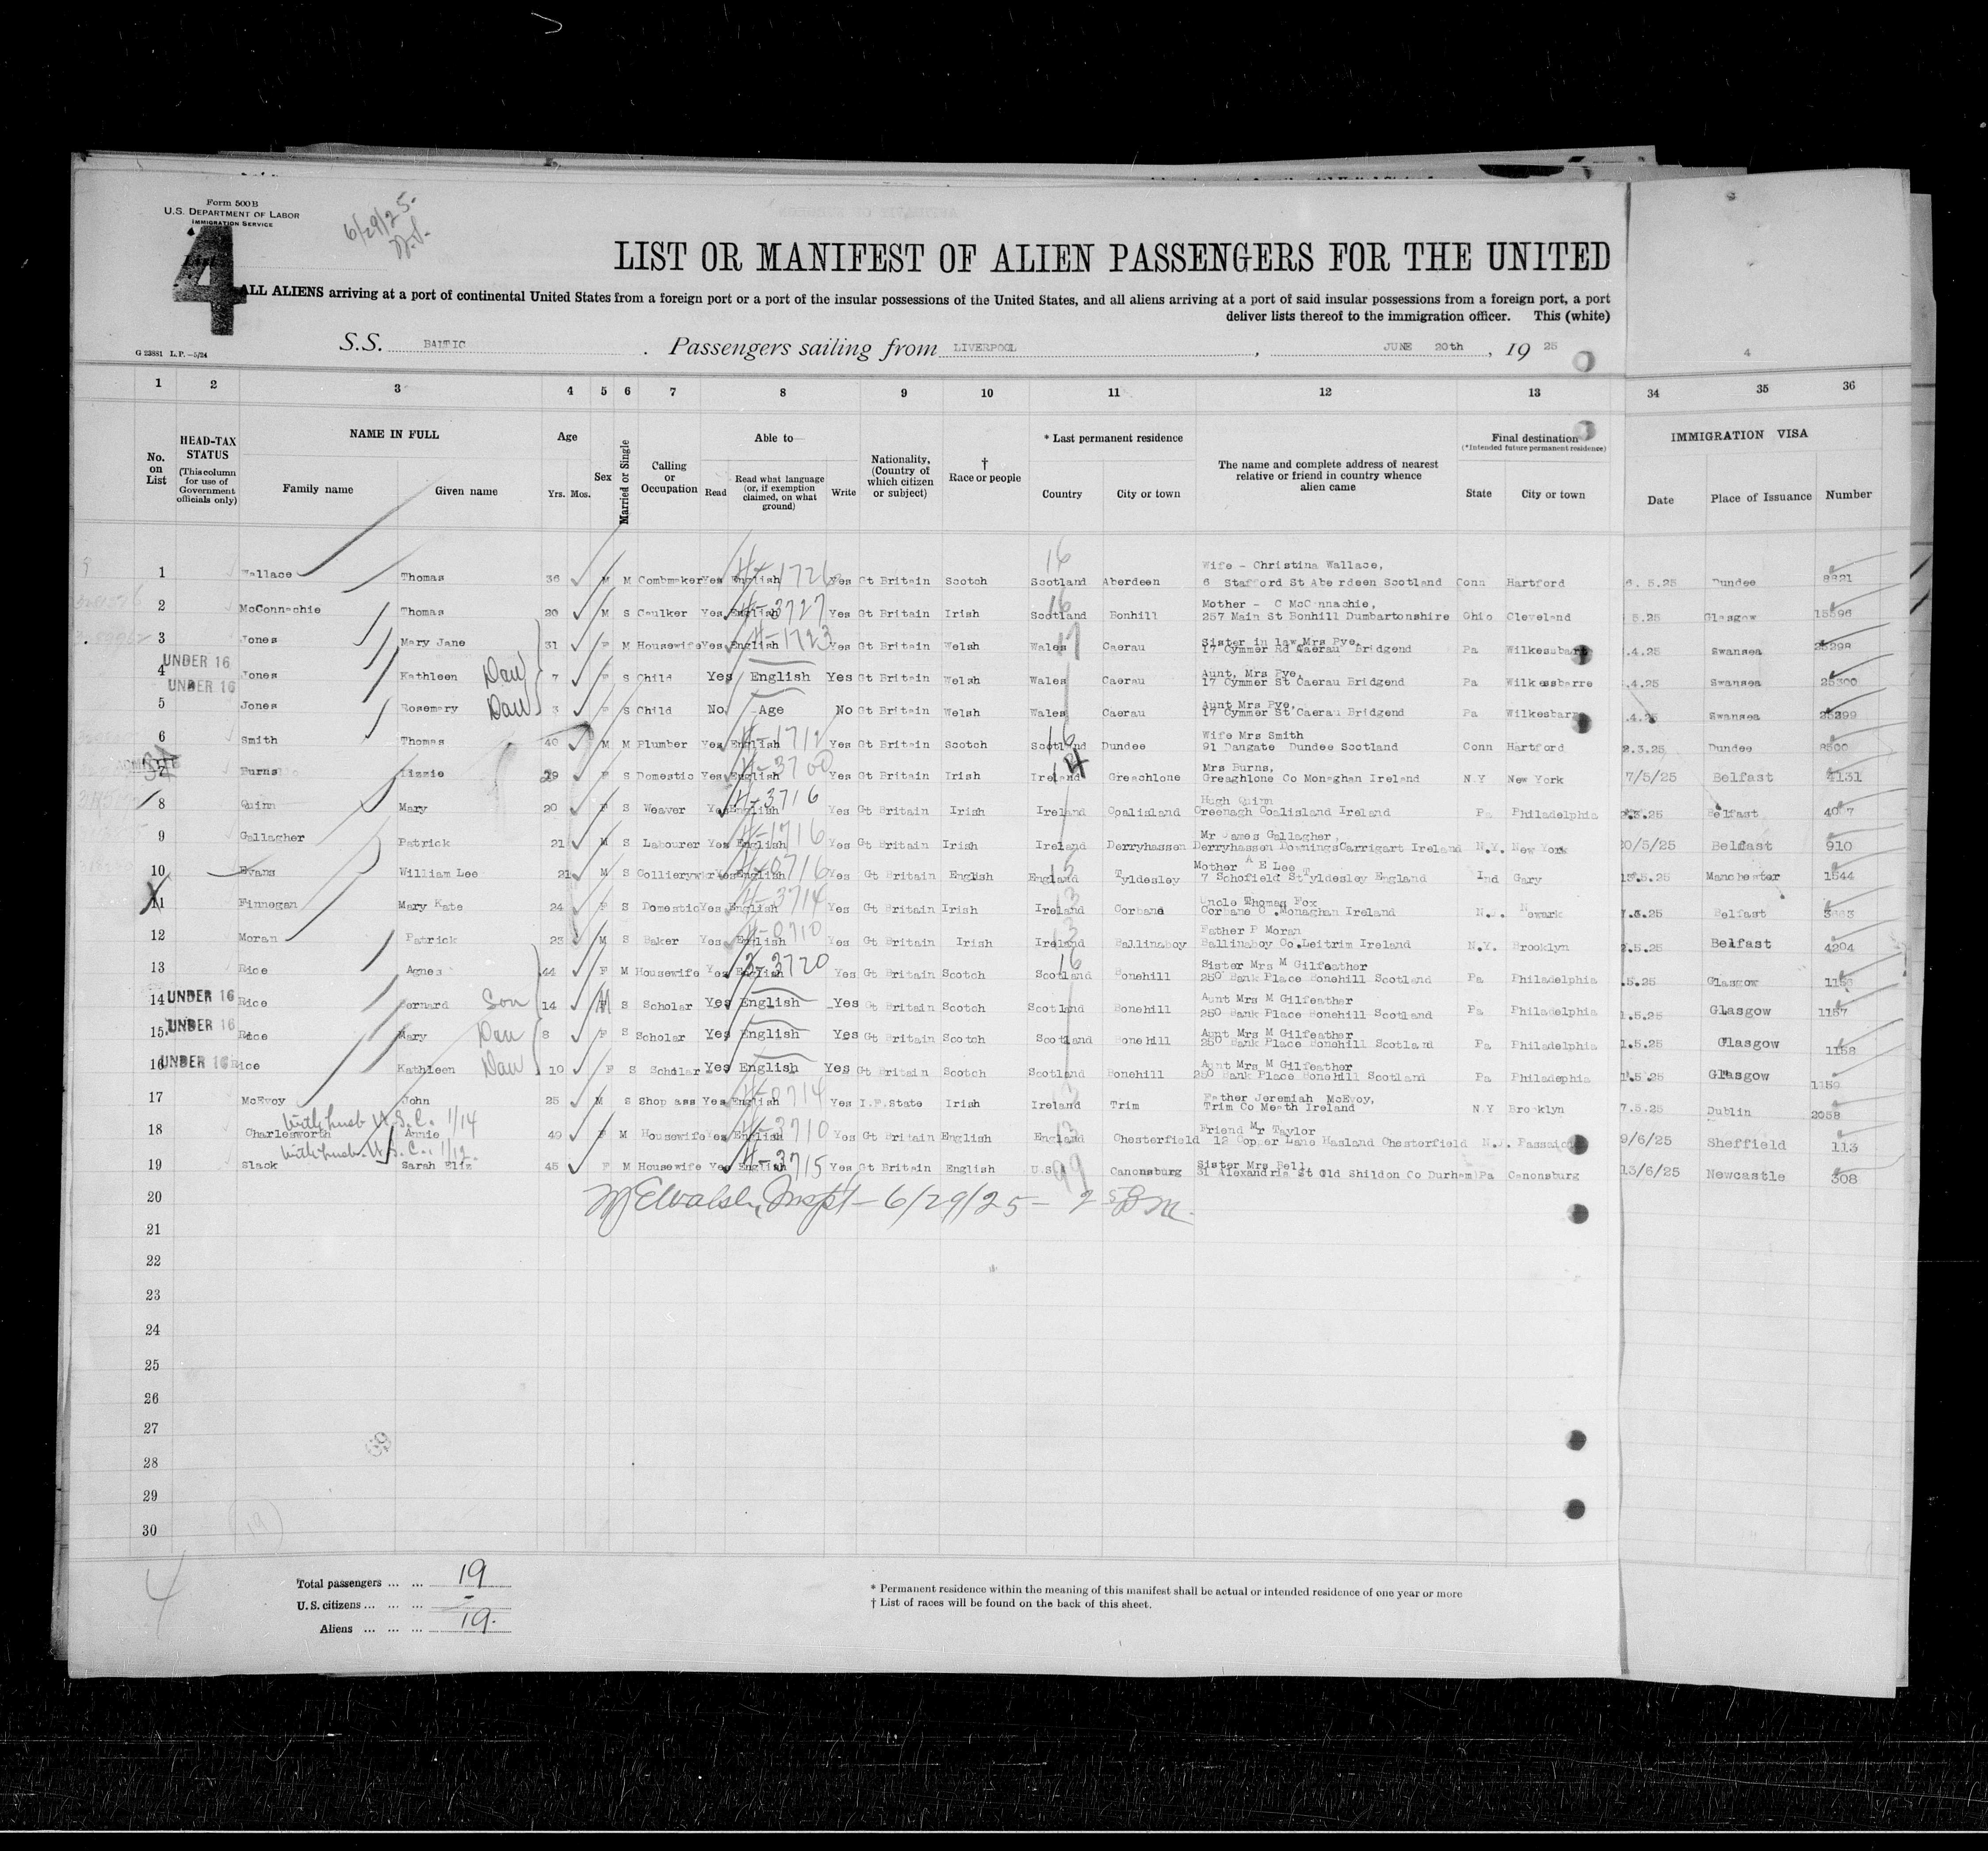 Form 500 B
U.S. DEPARTMENT OF LABOR
IMMIGRATION SERVICE
6/29/25-
4
LIST OR MANIFEST OF ALIEN PASSENGERS FOR THE UNITED
ALL ALIENS arriving at a port of continental United States from a foreign port or a port of the insular possessions of the United States, and all aliens arriving at a port of said insular possessions from a foreign port, a port
deliver lists thereof to the immigration officer. This (white)
G 23881 L.P.—5/24
S.S. BALTIC. Passengers sailing from LIVERPOOL, JUNE 20th, 19 25
4
1 2 3 4 5 6 7 8 9 10 11 12 13 34 35 36
No. on List
HEAD-TAX STATUS (This column for use of Government officials only)
NAME IN FULL
Family name Given name
Age
Yrs. Mos.
Sex
Married or Single
Calling or Occupation
Able to
Read
Read what language (or, if exemption claimed, on what ground)
Write
Nationality, (Country of which citizen or subject)
† Race or people
* Last permanent residence
Country City or town
The name and complete address of nearest relative or friend in country whence alien came
Final destination
(*Intended future permanent residence)
State City or town
IMMIGRATION VISA
Date Place of Issuance Number
1 Wallace Thomas 36 M M Combmaker Yes English 4-1726 Yes Gt Britain Scotch 16 Scotland Aberdeen Wife - Christina Wallace, 6 Stafford St Aberdeen Scotland Conn Hartford 6.5.25 Dundee 8821
2 McConnachie Thomas 20 M S Caulker Yes English 4-3727 Yes Gt Britain Irish 16 Scotland Bonhill Mother - C McConnachie, 257 Main St Bonhill Dumbartonshire Ohio Cleveland 5.25 Glasgow 15596
3 Jones Mary Jane 31 F M Housewife Yes English 4-1723 Yes Gt Britain Welsh 17 Wales Caerau Sister in law Mrs Pye, 17 Cymmer Rd Caerau Bridgend Pa Wilkessbarre .4.25 Swansea 25298
UNDER 16
4 Jones Kathleen Dau 7 F S Child Yes English Yes Gt Britain Welsh Wales Caerau Aunt, Mrs Pye, 17 Cymmer St Caerau Bridgend Pa Wilkessbarre .4.25 Swansea 25300
UNDER 16
5 Jones Rosemary Dau 3 F S Child No Age No Gt Britain Welsh Wales Caerau Aunt Mrs Pye, 17 Cymmer St Caerau Bridgend Pa Wilkesbarre .4.25 Swansea 25299
6 Smith Thomas 40 M M Plumber Yes English 4-1712 Yes Gt Britain Scotch 16 Scotland Dundee Wife Mrs Smith 91 Dangate Dundee Scotland Conn Hartford 2.3.25 Dundee 8500
7 Burns Lizzie 29 F S Domestic Yes English 4-3700 Yes Gt Britain Irish Ireland Greachlone Mrs Burns, Greaghlone Co Monaghan Ireland N.Y New York 7/5/25 Belfast 4131
8 Quinn Mary 20 F S Weaver Yes English 4-3716 Yes Gt Britain Irish Ireland Coalisland Hugh Quinn Creenagh Coalisland Ireland Pa Philadelphia .25 Belfast
9 Gallagher Patrick 21 M S Labourer Yes English 4-1716 Yes Gt Britain Irish Ireland Derryhassen Mr James Gallagher, Derryhassen Downings Carrigart Ireland N.Y. New York 0/5/25 Belfast 910
10 Evans William Lee 21 M S Collierywkr Yes English 4-0716 Yes Gt Britain English 15 England Tyldesley Mother A E Lee 7 Schofield St Tyldesley England Ind Gary 13.5.25 Manchester 1544
11 Finnegan Mary Kate 24 F S Domestic Yes English 4-3714 Yes Gt Britain Irish 13 Ireland Corbane Uncle Thomas Fox Corbane Co. Monaghan Ireland N.J. Newark .25 Belfast
12 Moran Patrick 23 M S Baker Yes English 4-0710 Yes Gt Britain Irish 13 Ireland Ballinaboy Father P Moran Ballinaboy Co.Leitrim Ireland N.Y. Brooklyn .5.25 Belfast 4204
13 Rice Agnes 44 F M Housewife Yes English 3-3720 Yes Gt Britain Scotch 16 Scotland Bonehill Sister Mrs M Gilfeather 250 Bank Place Bonehill Scotland Pa Philadelphia .5.25 Glasgow 1156
14 UNDER 16 Rice Bernard Son 14 M S Scholar Yes English Yes Gt Britain Scotch Scotland Bonehill Aunt Mrs M Gilfeather 250 Bank Place Bonehill Scotland Pa Philadelphia 1.5.25 Glasgow 1157
15 UNDER 16 Rice Mary Dau 8 F S Scholar Yes English Yes Gt Britain Scotch Scotland Bonehill Aunt Mrs M Gilfeather 250 Bank Place Bonehill Scotland Pa Philadelphia 1.5.25 Glasgow 1158
16 UNDER 16 Rice Kathleen Dau 10 F S Scholar Yes English Yes Gt Britain Scotch Scotland Bonehill Aunt Mrs M Gilfeather 250 Bank Place Bonehill Scotland Pa Philadephia 1.5.25 Glasgow 1159
17 McEvoy John 25 M S Shop ass Yes English 4-0714 Yes I.F.State Irish 13 Ireland Trim Father Jeremiah McEvoy, Trim Co Meath Ireland N.Y Brooklyn 7.5.25 Dublin 2058
With husb U.S.C. 1/14
18 Charlesworth Annie 49 F M Housewife Yes English 4-3710 Yes Gt Britain English 13 England Chesterfield Friend Mr Taylor 12 Copper Lane Hasland Chesterfield N.J. Passaic 9/6/25 Sheffield 113
With husb. U.S.C. 1/12.
19 Slack Sarah Eliz 45 F M Housewife Yes English 4-3715 Yes Gt Britain English U.S. 99 Canonsburg Sister Mrs Bell, 31 Alexandria St Old Shildon Co Durham Pa Canonsburg 13/6/25 Newcastle 308
20 Inspt - 6/29/25 -
21
22
23
24
25
26
27
28
29
30
69
19
4
Total passengers ... ... 19
U.S. citizens ... ... ... -
Aliens ... ... ... 19.
* Permanent residence within the meaning of this manifest shall be actual or intended residence of one year or more
† List of races will be found on the back of this sheet.